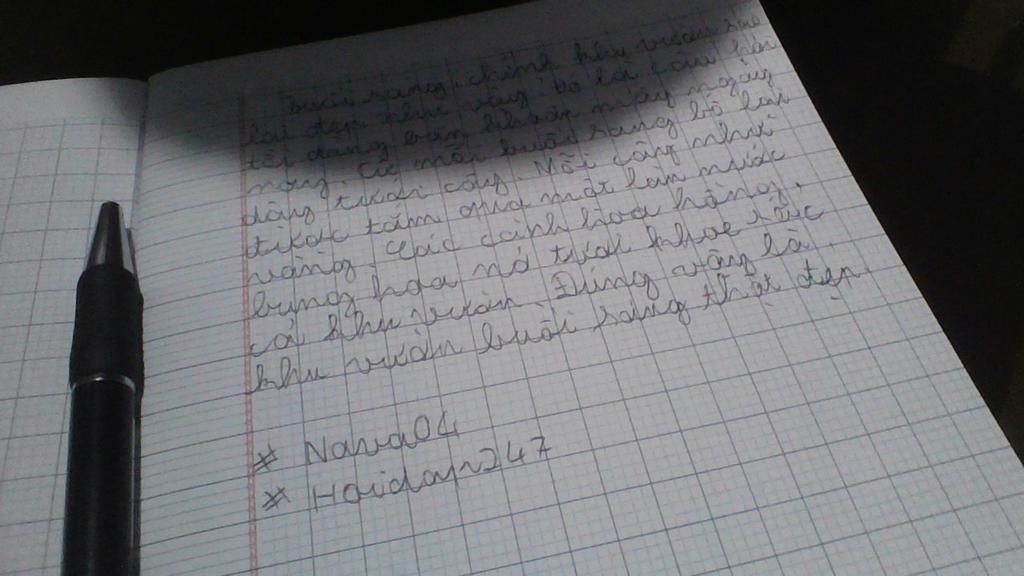 Buổi sáng, chính khu vườn sao
lại đẹp như vậy. Đó là câu hỏi
tôi đang băn khoăn mấy ngày
nay. Cứ mỗi buổi sáng bố lại
dậy tưới cây. Mỗi cây như
được tắm qua một làn nước
nóng. Các cành hoa hồng,
bụng hoa nở tươi khoe sắc
cả khu vườn. Đúng vậy là
khu vườn buổi sáng thật đẹp.
* Nava04
* Hoidap247